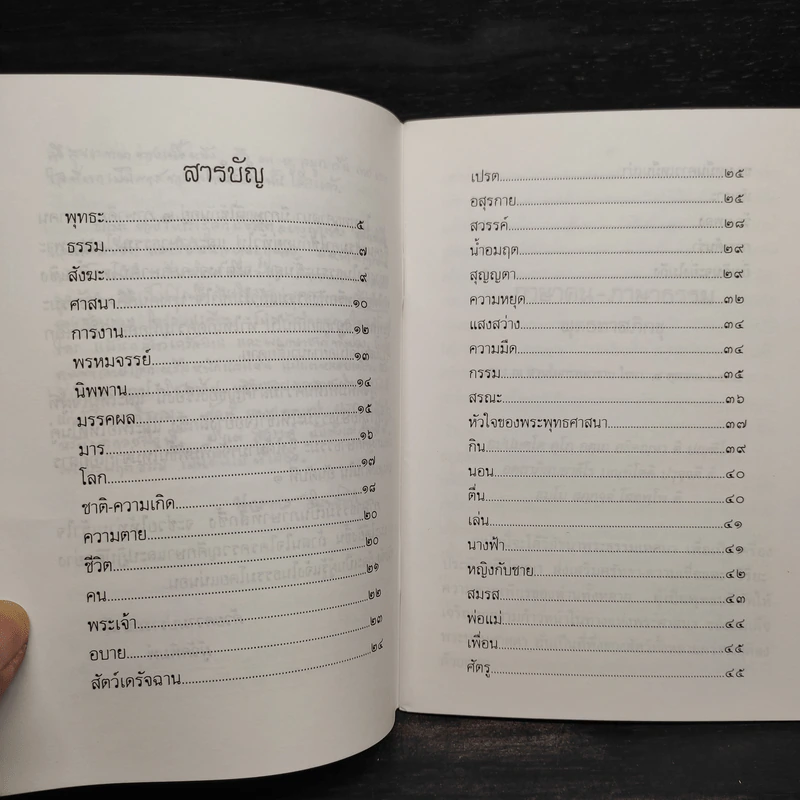 สารบัญ
พุทธะ....................๕
ธรรม....................๗
สังฆะ....................๙
ศาสนา....................๑๐
การงาน....................๑๒
พรหมจรรย์....................๑๓
นิพพาน....................๑๔
มรรคผล....................๑๕
มาร....................๑๖
โลก....................๑๗
ชาติ-ความเกิด....................๑๘
ความตาย....................๒๐
ชีวิต....................๒๐
คน....................๒๑
พระเจ้า....................๒๒
อบาย....................๒๓
สัตว์เดรัจฉาน....................๒๔
เปรต....................๒๕
อสุรกาย....................๒๕
สวรรค์....................๒๘
น้ำอมฤต....................๒๙
สุญญตา....................๒๙
ความหยุด....................๓๒
แสงสว่าง....................๓๔
ความมืด....................๓๔
กรรม....................๓๕
สรณะ....................๓๖
หัวใจของพระพุทธศาสนา....................๓๗
กิน....................๓๙
นอน....................๔๐
ตื่น....................๔๐
เล่น....................๔๑
นางฟ้า....................๔๑
หญิงกับชาย....................๔๒
สมรส....................๔๓
พ่อแม่....................๔๔
เพื่อน....................๔๕
ศัตรู....................๔๕